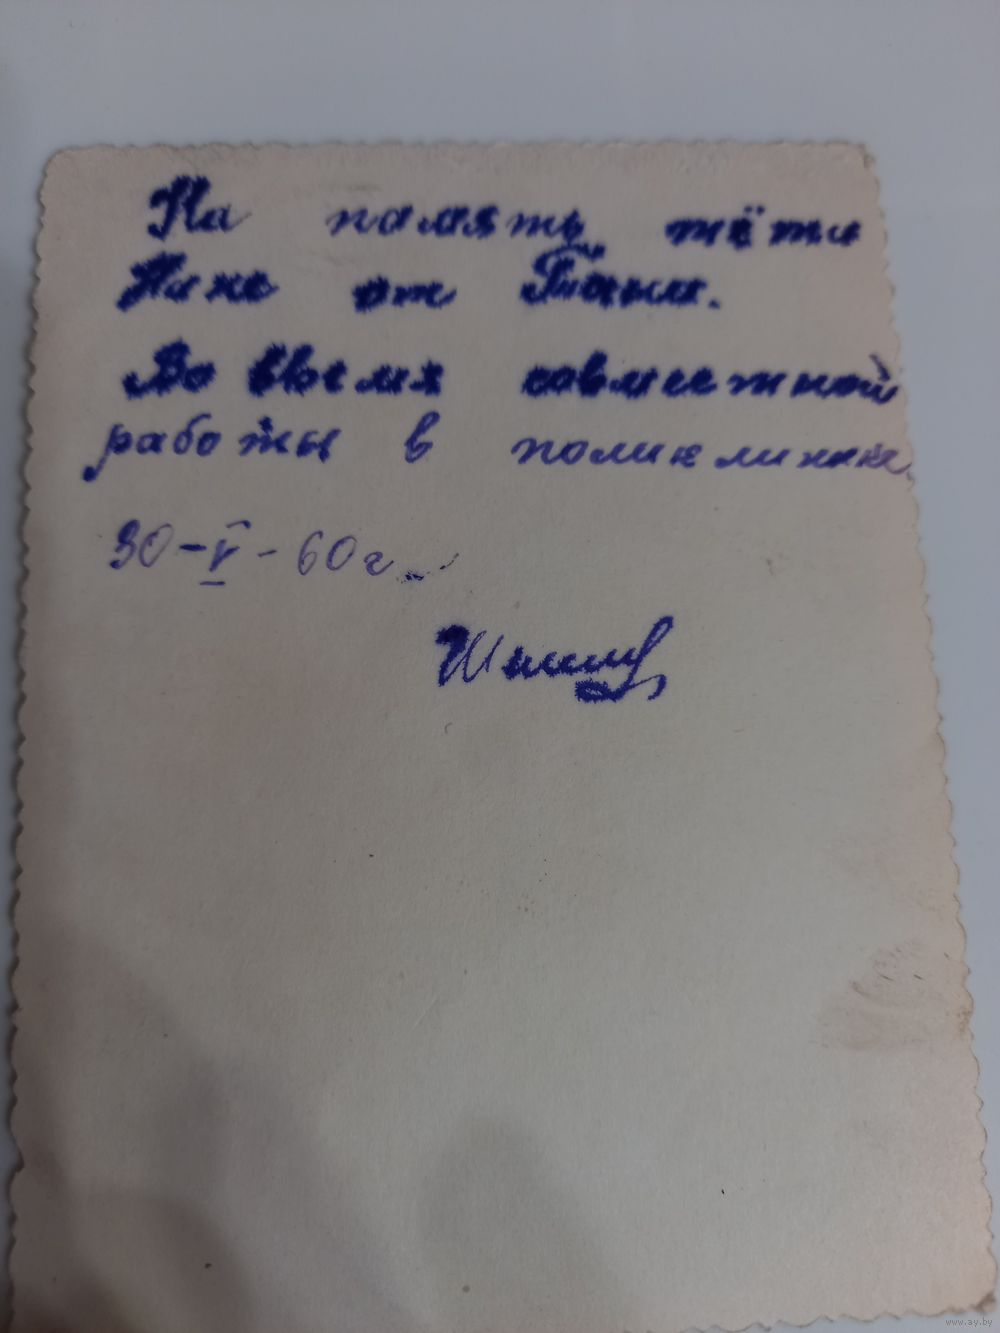 На память тёти
Нине от Тани.
Во время совместной
работы в поликлинике.
30-V-60г.
www.ay.by